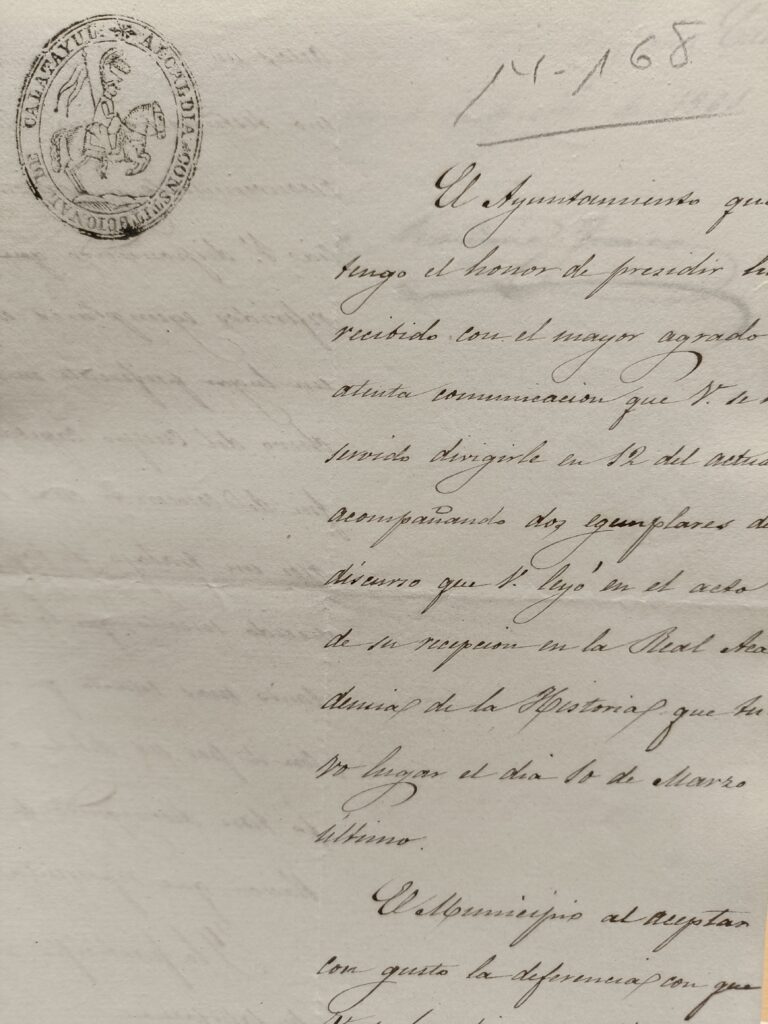 ALCALDIA CONSTITUCIONAL DE CALATAYUD
14-168
El Ayuntamiento que
tengo el honor de presidir
recibido con el mayor agrado
atenta comunicacion que V. se
servido dirigirle en 12 del actua
acompañando dos egemplares de
discurso que V. leyó en el acto
de su recepcion en la Real Aca
demia de la Historia que tu
vo lugar el dia 10 de Marzo
último.
El Municipio al aceptar
con gusto la deferencia con que